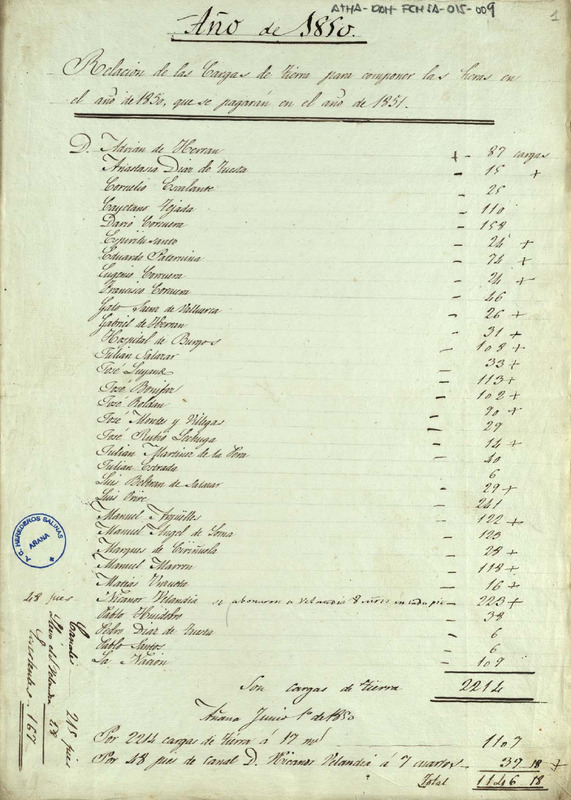 ATHA-DAH-FCMSA-015-009
1
Año de 1850.
Relacion de las Cargas de tierra para componer las heras en
el año de 1850, que se pagarán en el año de 1851.
D. Adrian de Herran + - 87 cargas
Anastasia Diaz de Tuesta - 15 +
Cornelio Escalante - 25
Cayetano Tejada - 110
Dario Corcuera - 158
Espiritu santo - 24 +
Eduardo Paternina - 74 +
Eugenio Corcuera - 24 +
Francisco Corcuera - 46
Gato Saenz de - 26 +
Gabriel de Herran - 31 +
Hospital de Burgos - 108 +
Julian Salazar - 33 +
José Luyana - 113 +
José Bonifaz - 102 +
José Roldan - 90 +
José Montes y Villegas - 29
José Rubio Lechuga - 14 +
Julian Martinez de la Pera - 40
Julian Estrada 6
Luis Beltran de Salazar - 29 +
Luis 241
Manuel Arguelles - 122 +
Manuel Angel de Soma - 123
Marques de Ciriñuela - 28 +
Manuel Marron - 118 +
Matias - 16 +
Nicanor Velandia se abonaron a Velandia 8 años - 223 +
Pablo Huidobro - 38
Diaz de Tuesta - 6
Pablo Santos - 6
La Nacion - 109
Son cargas de tierra 2214
Añana Junio 1º de 1850
Por 2214 cargas de tierra á 17 mrs 1107
Por 48 pies de canal D. Nicanor Velandia á 7 cuartos 39 18 +
Total 1146 18
A. G. HEREDEROS SALINAS
AÑANA
48 pies
Canales 215 pies
Velandia 48
167